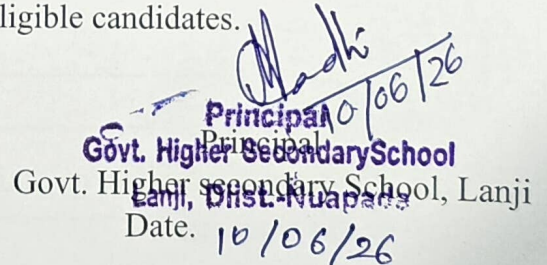 ligible candidates.
10/06/26
Principal
Govt. Higher Secondary School
Lanji, Dist.-Nuapada
Principal
Govt. Higher secondary School, Lanji
Date. 10/06/26